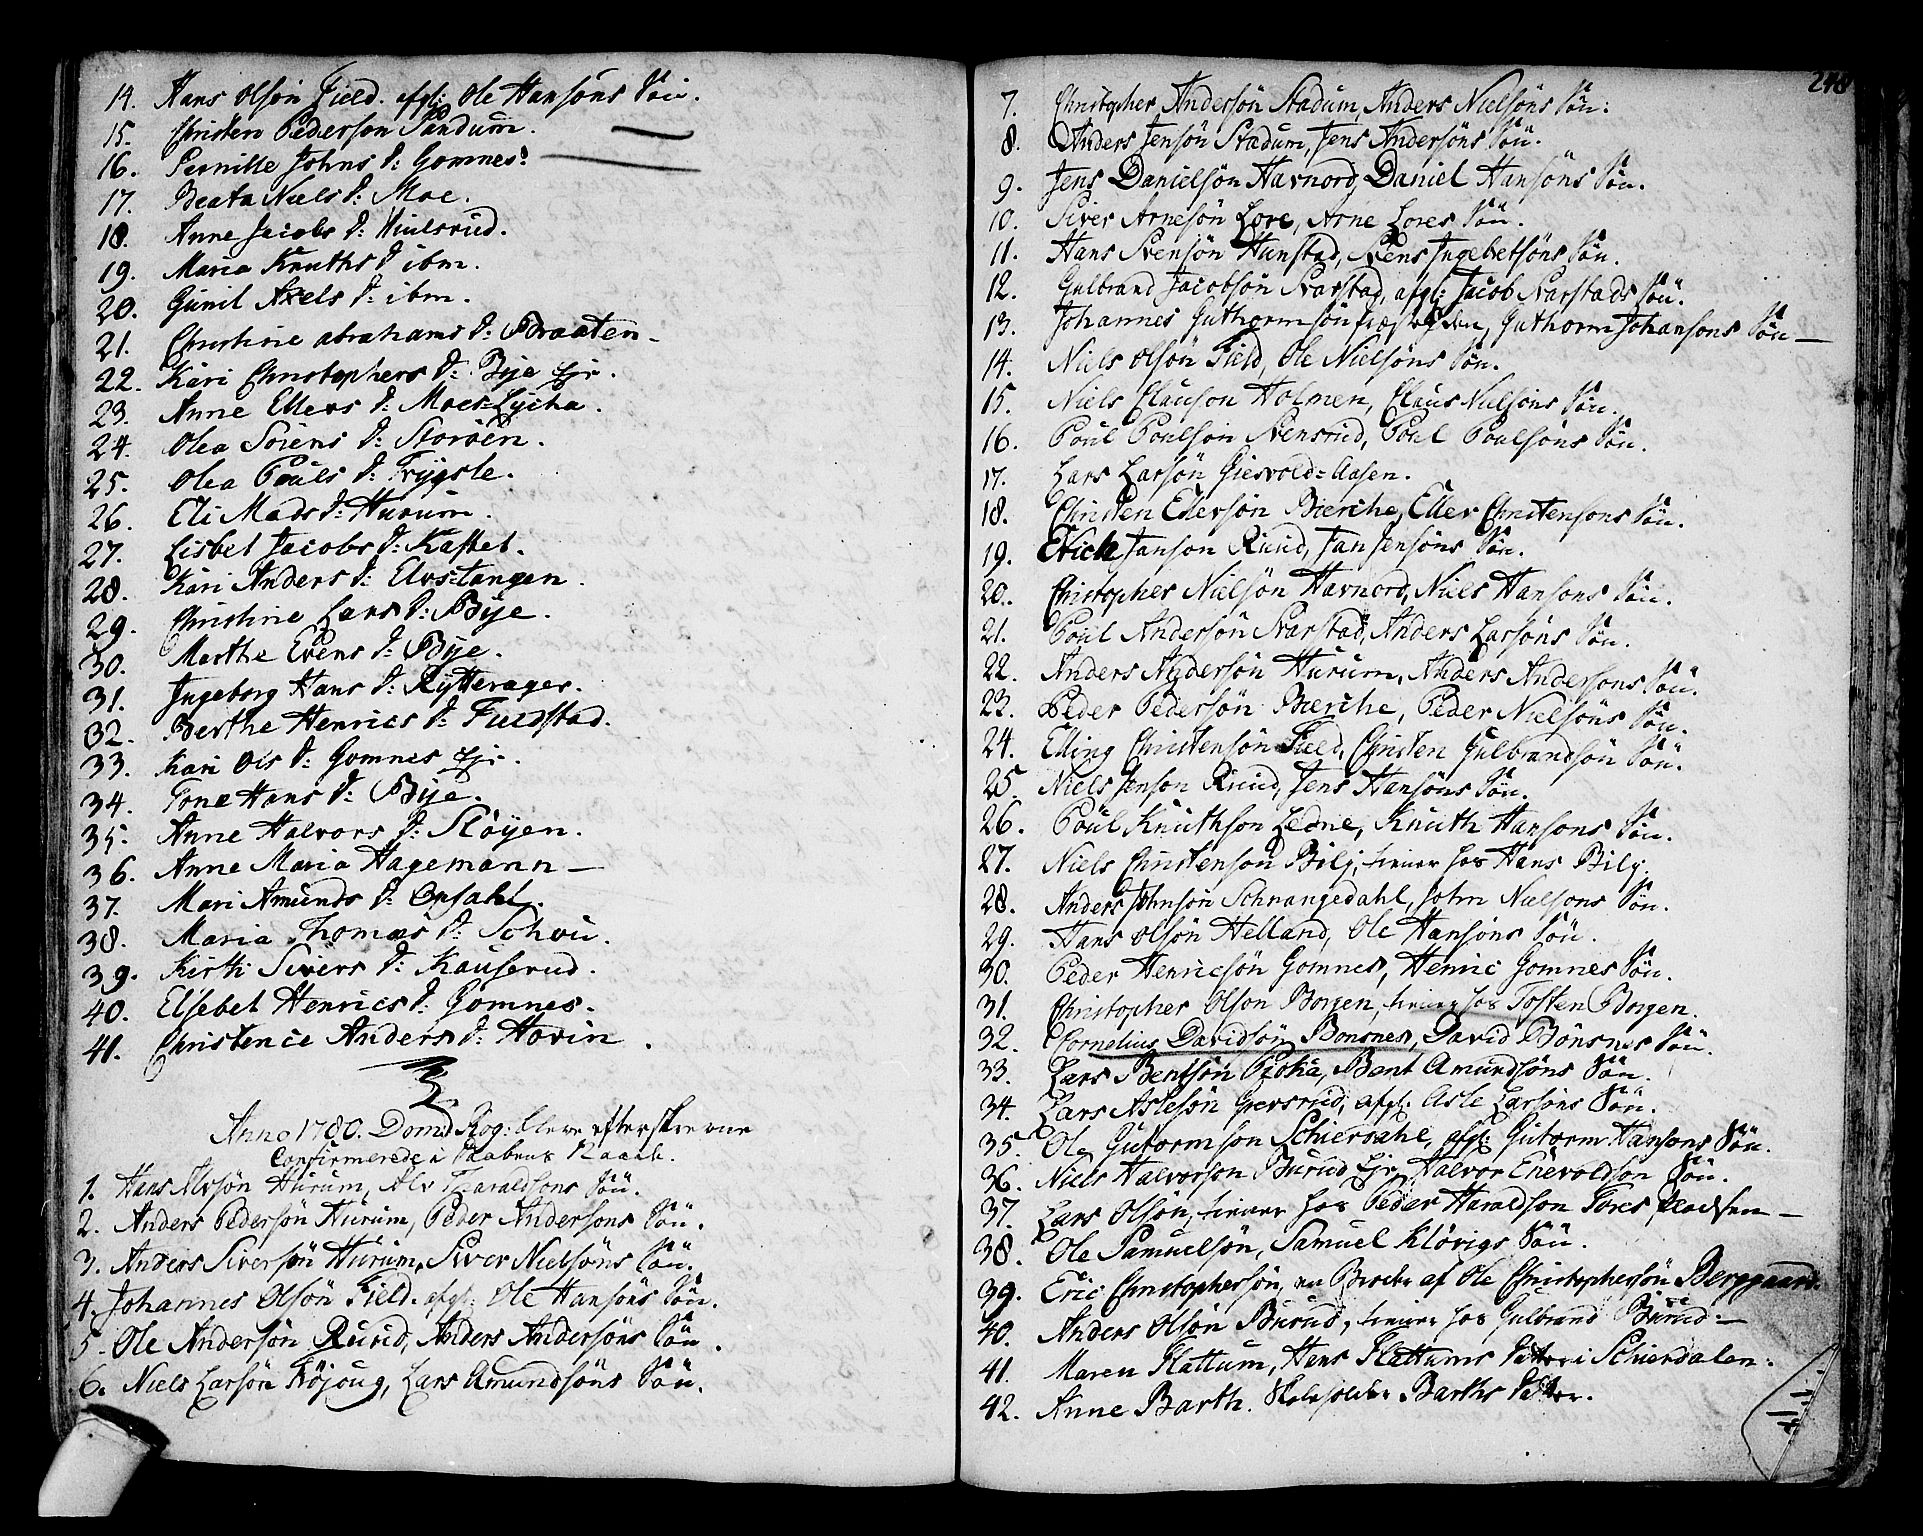 14. Hans Olsön Field. afgl: Ole Hansöns Sön.
15. Christen Pedersön Sandum.
16. Pernille Johns D: Gomnes.
17. Beata Niels D: Moe.
18. Anne Jacobs D: Hiulsrud.
19. Maria Knuths D ibm.
20. Gunil Axels D: ibm.
21. Christine abrahams D: Braaten
22. Kari Christophers D: Bye Ejr.
23. Anne Ellevs D: Moe=Lycka.
24. Olea Sörens D: Storöen.
25. Olea Pouls D: Frygsle.
26. Eli Mads D: Hurum.
27. Lisbet Jacobs D: Kastet.
28. Kari Anders D: Elvs=tangen.
29. Christine Lars D: Bye.
30. Marthe Evens D: Bye.
31. Ingeborg Hans D: Rytterager.
32. Berthe Henrics D: Fieldstad.
33. Kari Ols D: Gomnes Ejr.
34. Tone Hans D: Bye.
35. Anne Halvors D: Slöyen.
36. Anne Maria Hagemann
37. Mari Amunds D: Opsahl.
38. Maria Thomæs D: Schou.
39. Kirsti Sivers D: Kauserud.
40. Elsebet Henrics D: Gomnes.
41. Christence Anders D: Hovin.
Anno 1780. Dom: Rog: bleve efterskrevne
Confirmerede i Stabens Kaark.
1. Hans Alvsön Hurum, Alv Tharaldsöns Sön.
2. Anders Pedersön Hurum, Peder Andersöns Sön.
3. Anders Siversön Hurum, Siver Nielsöns Sön.
4. Johannes Olsön Field. afgl: Ole Hansöns Sön.
5. Ole Andersön Ruud, Anders Andersöns Sön.
6. Niels Larsön Röjoug, Lars Amundsöns Sön.
248
7. Christopher Andersön Stadum, Anders Nielsöns Sön.
8. Anders Jensön Stadum, Jens Andersöns Sön.
9. Jens Danielsön Havnord, Daniel Hansöns Sön.
10. Siver Arnesön Lore, Arne Lores Sön.
11. Hans Svensön Hunstad, Svens Ingebretsöns Sön.
12. Gulbrand Jacobsön Svarstad, afgl: Jacob Svarstads Sön.
13. Johannes Guthormsön, Guthorm Johansöns Sön
14. Niels Olsön Field, Ole Nielsöns Sön.
15. Niels Clausön Holmen, Claus Nielsöns Sön.
16. Poul Poulsön Svensrud, Poul Poulsöns Sön.
17. Lars Larsön Giesvold=Aasen.
18. Christen Ellevsön Bierche, Ellev Christensöns Sön.
19. Erich Jansön Ruud, Jan Jensöns Sön.
20. Christopher Nielsön Havnord, Niels Hansöns Sön.
21. Poul Andersön Svarstad, Anders Larsöns Sön.
22. Anders Andersön Hurum, Anders Andersöns Sön.
23. Peder Pedersön Bierche, Peder Nielsöns Sön.
24. Elling Christensön Field, Christen Gulbrandsön Sön.
25. Niels Jensön Ruud, Jens Hansöns Sön.
26. Poul Knuthsön Ledne, Knuth Hansöns Sön.
27. Niels Christensön Bily, tiener hos Hans Bily.
28. Anders Johnsön Schnangedahl, John Nielsöns Sön.
29. Hans Olsön Helland, Ole Hansöns Sön.
30. Peder Henricsön Gomnes, Henric Gomnes Sön.
31. Christopher Olsön Borgen, tiener hos Tosten Borgen.
32. Cornelius Davidsön Bonsnes, David Bönsnes Sön.
33. Lars Bentsön Ploka, Bent Amundsöns Sön.
34. Lars Aslesön Gersrud, afgl. Asle Larsöns Sön.
35. Ole Gutormsön Schierdahl, afgl: Gutorm Hansöns Sön.
36. Niels Halvorsön Burud Ejr, Halvor Enevoldsön Sön.
37. Lars Olsön, tiener hos Peder Haraldsön Tores pladsen
38. Ole Samuelsön, Samuel Klövigs Sön.
39. Eric Christophersön, en Broder af Ole Christophersön Berggaard.
40. Anders Olsön Burud, tiener hos Gulbrand Burud.
41. Maren Flattum, Hens Flattums Datter i Schierdalen.
42. Anne Barth. Skoleholder Barths Datter.